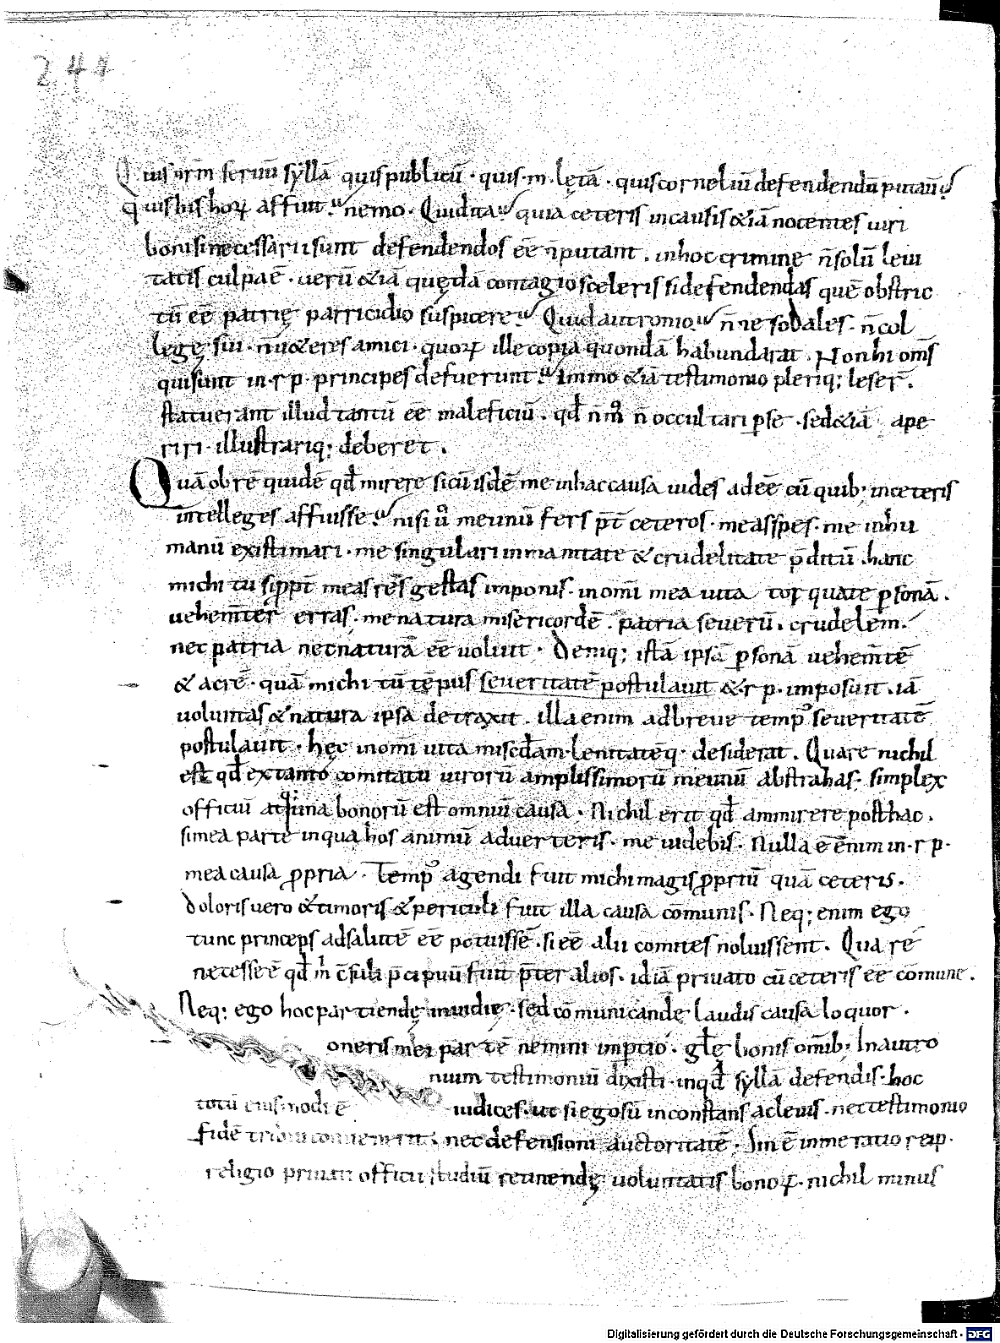 241
Quis nr̄m seruiū syllā quis publiū · quis · m · lętā · quis corneliū defendendū putauit
quis his horꝝ affuit nemo · Quid ita quia ceteris in causis &iā nocentes uiri
boni si necessarii sunt defendendos eē n̄ putant · in hoc crimine n̄ solū leui
tatis culpa ē · uerū &iā quędā contagio sceleris si defendendas quē obstric
tū eē patrię parricidio suspicere Quid autronio n̄ne sodales · n̄ col
legę sui · n̄ u&eres amici · quorꝝ ille copia quondā habundarat · Non hi om̄s
qui sunt in · r p · principes defuerunt Immo &iā testimonio pleriq; leser̄ ·
statuerant illud tantū eē maleficiū · qd̄ n̄ m̊ n̄ occultari p̱ se · sed &iā ape
riri · illustrariq; deberet ·
Quā ob rē quid ē qd̄ mirere si cū isdē me in hac causa uides adeē cū quib; in ceteris
intelleges affuisse nisi ů me unū fers p̄t ceteros · me asp̱es · me inhu
manū existimari · me singulari inmanitate & crudelitate p̄ditū · hanc
michi tu si ppt̄ meas rēs gestas imponis · in omī mea uita torquate p̱sonā ·
uehem̄ter erras · me natura misericordē · patria seuerū · crudelem ·
nec patria nec naturā eē uoluit · Deniq; istā ipsā p̱sonā uehem̄tē
& acrē · quā michi tū tēpus seueritatē postulauit & r p · imposuit · iā
uoluntas & natura ipsa detraxit · illa enim ad breue temp᷒ seueritatē
postulauit · hęc in omī uita miscd̄am · lenitatēq · desiderat · Quare nichil
est qd̄ ex tanto comitatu uirorū amplissimorū me unū abstrahas · simplex
officiū atq; una bonorū est omniū causa · Nichil erit qd̄ ammirere posthac ·
si mea parte in qua hos animū aduerteris · me uidebis · Nulla ē enim in · r p ·
mea causa ꝓpria · Temp᷒ agendi fuit michi magis ꝓpriū quā ceteris ·
doloris uero & timoris & periculi fuit illa causa cōmunis · Neq; enim ego
tunc princeps ad salutē eē potuissē · si eē alii comites noluissent · Qua rē
necesse ē qd̄ m̄ c̄suli p̄cipuū fuit p̄ter alios · id iā priuato cū ceteris eē cōmune ·
Neq; ego hoc partiendę inuidię · sed cōmunicandę laudis causa loquor ·
oneris mei partē nemini imp̱tio · gl̄ę bonis omīb; In autro
nium testimoniū dixisti · inqd̄ syllā defendis · hoc
totū eiusmodi ē iudices · ut si ego sū inconstans ac leuis · nec testimonio
fidē tribui conuenerit · nec defensioni auctoritatē · Sin ē in me ratio reip ·
religio priuati officii studiū retinendę uoluntatis bonoꝝ · nichil minus
Digitalisierung gefördert durch die Deutsche Forschungsgemeinschaft - DFG